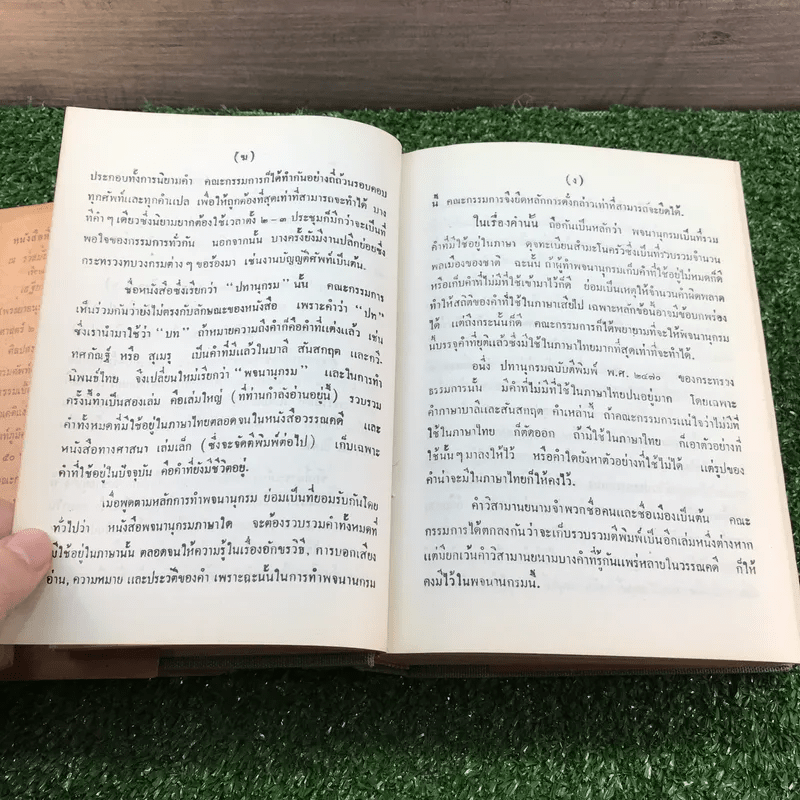 (ฆ)
ประกอบทั้งการนิยามคำ คณะกรรมการก็ได้ทำกันอย่างถี่ถ้วนรอบคอบ
ทุกศัพท์และทุกคำแปล เพื่อให้ถูกต้องที่สุดเท่าที่สามารถจะทำได้ บาง
ทีคำๆ เดียวซึ่งนิยามยากต้องใช้เวลาตั้ง ๒ – ๓ ประชุมก็มีกว่าจะเป็นที่
พอใจของกรรมการทั่วกัน นอกจากนั้น บางครั้งยังมีงานปลีกย่อยซึ่ง
กระทรวงทบวงกรมต่างๆ ขอร้องมา เช่นงานบัญญัติศัพท์เป็นต้น.
ชื่อหนังสือซึ่งเรียกว่า "ปทานุกรม" นั้น คณะกรรมการ
เห็นร่วมกันว่ายังไม่ตรงกับลักษณะของหนังสือ เพราะคำว่า "ปท"
ซึ่งเรานำมาใช้ว่า "บท" ถ้าหมายความถึงคำก็คือคำที่แต่งแล้ว เช่น
ทศกัณฐ์ หรือ สุเมรุ เป็นคำที่มีแล้วในบาลี สันสกฤต และกวี.
นิพนธ์ไทย จึงเปลี่ยนใหม่เรียกว่า "พจนานุกรม" และในการทำ
ครั้งนี้ทำเป็นสองเล่ม คือเล่มใหญ่ (ที่ท่านกำลังอ่านอยู่นี้) รวบรวม
คำทั้งหมดที่มีใช้อยู่ในภาษาไทยตลอดจนในหนังสือวรรณคดี และ
หนังสือทางศาสนา เล่มเล็ก (ซึ่งจะจัดตีพิมพ์ต่อไป) เก็บเฉพาะ
คำที่ใช้อยู่ในปัจจุบัน คือคำที่ยังมีชีวิตอยู่.
เมื่อพูดตามหลักการทำพจนานุกรม ย่อมเป็นที่ยอมรับกันโดย
ทั่วไปว่า หนังสือพจนานุกรมภาษาใด จะต้องรวบรวมคำทั้งหมดที่
มีใช้อยู่ในภาษานั้น ตลอดจนให้ความรู้ในเรื่องอักขรวิธี, การบอกเสียง
อ่าน, ความหมาย และประวัติของคำ เพราะฉะนั้นในการทำพจนานุกรม
(ง)
นี้ คณะกรรมการจึงยึดหลักการดั่งกล่าวเท่าที่สามารถจะยึดได้.
ในเรื่องคำนั้น ถือกันเป็นหลักว่า พจนานุกรมเป็นที่รวม
คำที่มีใช้อยู่ในภาษา ดุจทะเบียนสำมะโนครัวซึ่งเป็นที่รวบรวมจำนวน
พลเมืองของชาติ ฉะนั้น ถ้าผู้ทำพจนานุกรมเก็บคำที่ใช้อยู่ไม่หมดก็ดี
หรือเก็บคำที่ไม่มีที่ใช้เข้ามาไว้ก็ดี ย่อมเป็นเหตุให้จำนวนคำผิดพลาด
ทำให้สถิติของคำที่ใช้ในภาษาเสียไป เฉพาะหลักข้อนี้อาจมีข้อบกพร่อง
ได้ แต่ถึงกระนั้นก็ดี คณะกรรมการก็ได้พยายามที่จะให้พจนานุกรม
นี้บรรจุคำที่ยุตแล้วซึ่งมีใช้ในภาษาไทยมากที่สุดเท่าที่จะทำได้.
อนึ่ง ปทานุกรมฉบับตีพิมพ์ พ.ศ. ๒๔๗๐ ของกระทรวง
ธรรมการนั้น มีคำที่ไม่มีที่ใช้ในภาษาไทยปนอยู่มาก โดยเฉพาะ
คำภาษาบาลีและสันสกฤต คำเหล่านี้ ถ้าคณะกรรมการแน่ใจว่าไม่มีที่
ใช้ในภาษาไทย ก็ตัดออก ถ้ามีใช้ในภาษาไทย ก็เอาตัวอย่างที่
ใช้นั้นๆ มาลงให้ไว้ หรือคำใดยังหาตัวอย่างที่ใช้ไม่ได้ แต่รูปของ
คำน่าจะมีในภาษาไทยก็ให้คงไว้.
คำวิสามานยนามจำพวกชื่อคนและชื่อเมืองเป็นต้น คณะ
กรรมการได้ตกลงกันว่าจะเก็บรวบรวมตีพิมพ์เป็นอีกเล่มหนึ่งต่างหาก
แต่มียกเว้นคำวิสามานยนามบางคำที่รู้กันแพร่หลายในวรรณคดี ก็ให้
คงมีไว้ในพจนานุกรมนี้.